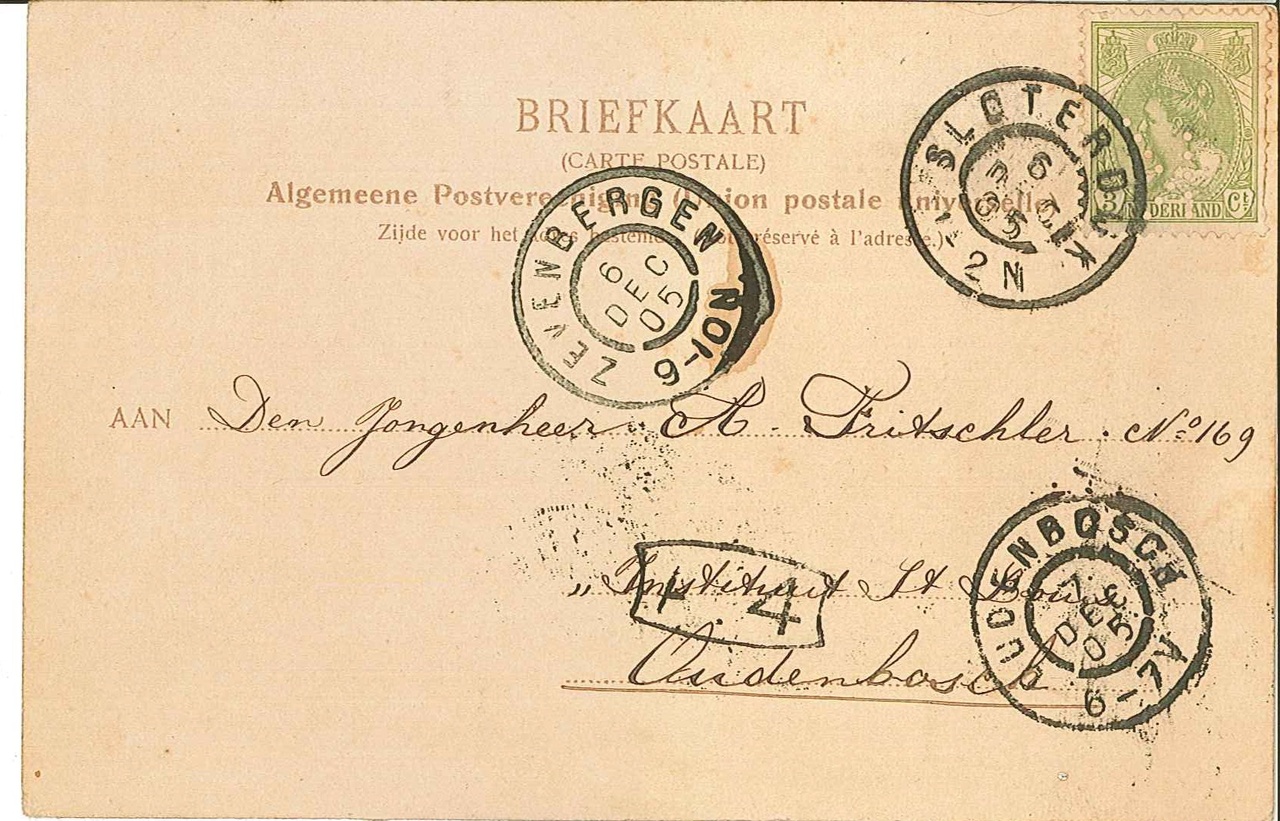 BRIEFKAART
(CARTE POSTALE)
Algemeene Postvereeniging (Union postale universelle)
Zijde voor het adres bestemd. (Côté réservé à l'adresse.)
SLOTERDIJK
6 DEC 05
1-2N
3 NEDERLAND Ct
ZEVENBERGEN
6 DEC 05
9-10N
AAN Den Jongenheer A. Fritschler. No 169
„ Instituut St Louis
4
Oudenbosch
OUDENBOSCH
7 DEC 05
6-7V